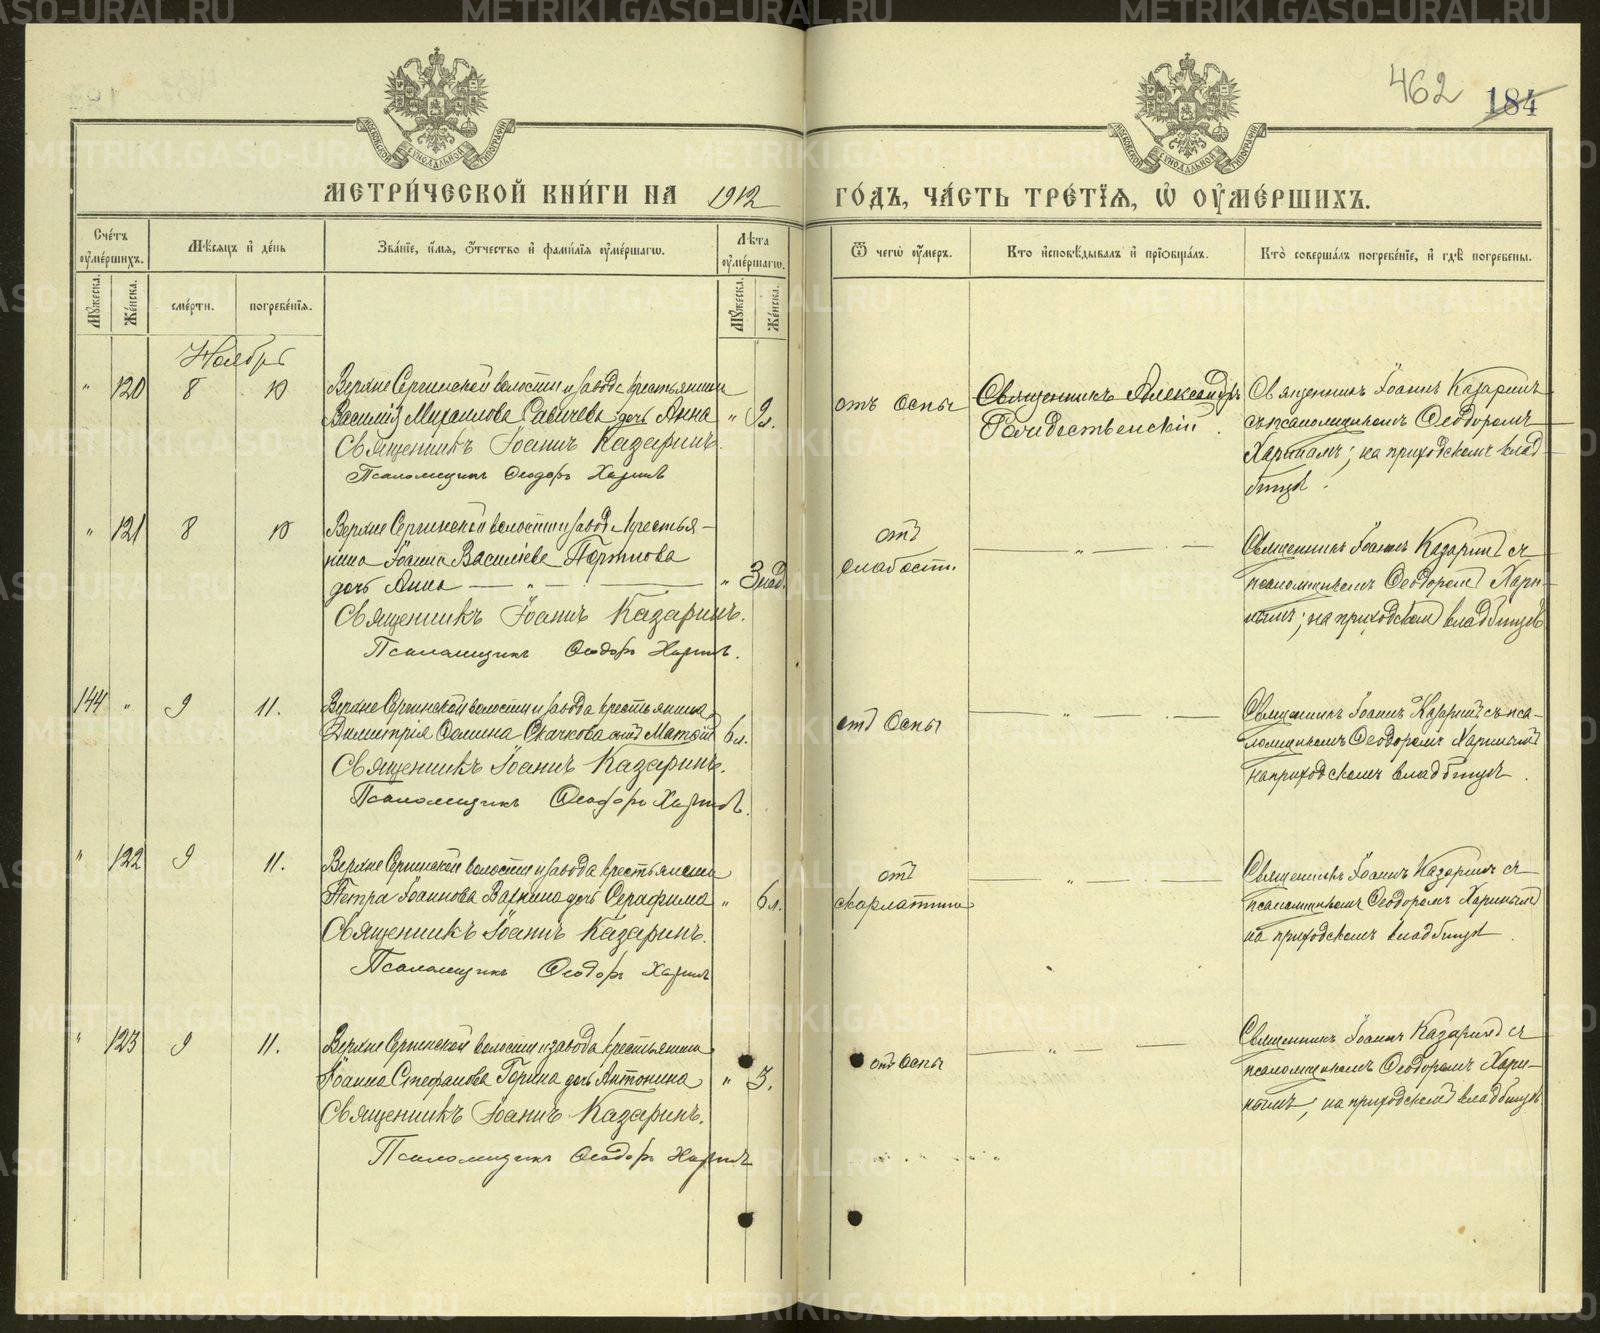 METRIKI.GASO-URAL.RU
462
184
МОСКОВСКОЙ СѴНОДАЛЬНОЙ ТИПОГРАФІИ
МОСКОВСКОЙ СѴНОДАЛЬНОЙ ТИПОГРАФІИ
МЕТРИ́ЧЕСКОЙ КНИ́ГИ НА 1912 ГО́ДЪ, ЧА́СТЬ ТРЕ́ТЇѦ, Ѡ҆ ОУ҆МЕ́РШИХЪ.
Сче́тъ оу҆ме́ршихъ.
Мѣ́сяцъ и҆ де́нь
Зва́нїе, и҆́мѧ, ѻ҆́тчество и҆ фами́лїѧ оу҆ме́ршагѡ.
Лѣ́та оу҆ме́ршагѡ.
Ѿ чегѡ̀ оу҆́меръ.
Кто̀ и҆сповѣ́дывалъ и҆ прїѡбща́лъ.
Кто̀ соверша́лъ погребе́нїе, и҆ гдѣ̀ погребены̀.
Мꙋ́жеска.
Же́нска.
сме́рти.
погребе́нїѧ.
Мꙋ́жеска.
Же́нска.
Ноябрь
" 120 8 10
Верхне Сергинской волости и завода крестьянина
Василия Михаилова Савичева дочь Анна " 9 л.
Священникъ Іоаннъ Казаринъ.
Псаломщикъ Ѳеодоръ Харинъ
отъ оспы
Священникъ Александръ
Рождественскій.
Священникъ Іоаннъ Казаринъ
съ псаломщикомъ Ѳеодоромъ
Харинымъ; на приходскомъ клад-
бищѣ.
" 121 8 10
Верхне Сергинской волости и завода крестья-
нина Іоанна Васильева Портнова
дочь Анна — " — " 3 нед.
Священникъ Іоаннъ Казаринъ.
Псаломщикъ Ѳеодоръ Харинъ.
отъ
слабости.
— " —
Священникъ Іоаннъ Казаринъ съ
псаломщикомъ Ѳеодоромъ Хари-
нымъ; на приходскомъ кладбищѣ
144 " 9 11.
Верхне Сергинской волости и завода крестьянина
Димитрія Скачкова сынъ 6 л.
Священникъ Іоаннъ Казаринъ.
Псаломщикъ Ѳеодоръ Харинъ.
отъ оспы
— " —
Священникъ Іоаннъ Казаринъ съ пса-
ломщикомъ Ѳеодоромъ Харинымъ
на приходскомъ кладбищѣ.
" 122 9 11.
Верхне Сергинской волости и завода крестьянина
Петра Іоаннова дочь Серафима " 6 л.
Священникъ Іоаннъ Казаринъ.
Псаломщикъ Ѳеодоръ Харинъ
отъ
скарлатины
— " —
Священникъ Іоаннъ Казаринъ съ
псаломщикомъ Ѳеодоромъ Харинымъ
на приходскомъ кладбищѣ.
" 123 9 11.
Верхне Сергинской волости и завода крестьянина
Іоанна Стефанова Горина дочь Антонина " 3.
Священникъ Іоаннъ Казаринъ.
Псаломщикъ Ѳеодоръ Харинъ
отъ оспы
— " —
Священникъ Іоаннъ Казаринъ съ
псаломщикомъ Ѳеодоромъ Хари-
нымъ; на приходскомъ кладбищѣ